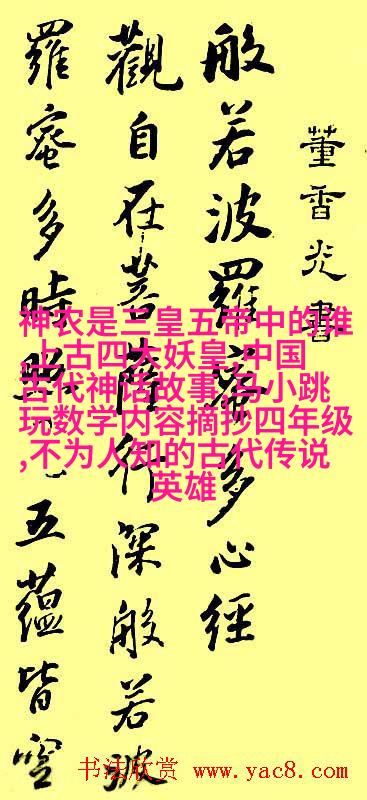 董香光書
般若波羅蜜多心經
觀自在菩薩行深般若波
羅蜜多時照五蘊皆空
神农是三皇五帝中的谁
,上古四大妖皇,中国
古代神话故事,马小跳
玩数学内容摘抄四年级
,不为人知的古代传说
英雄
书法欣赏 www.yac8.com